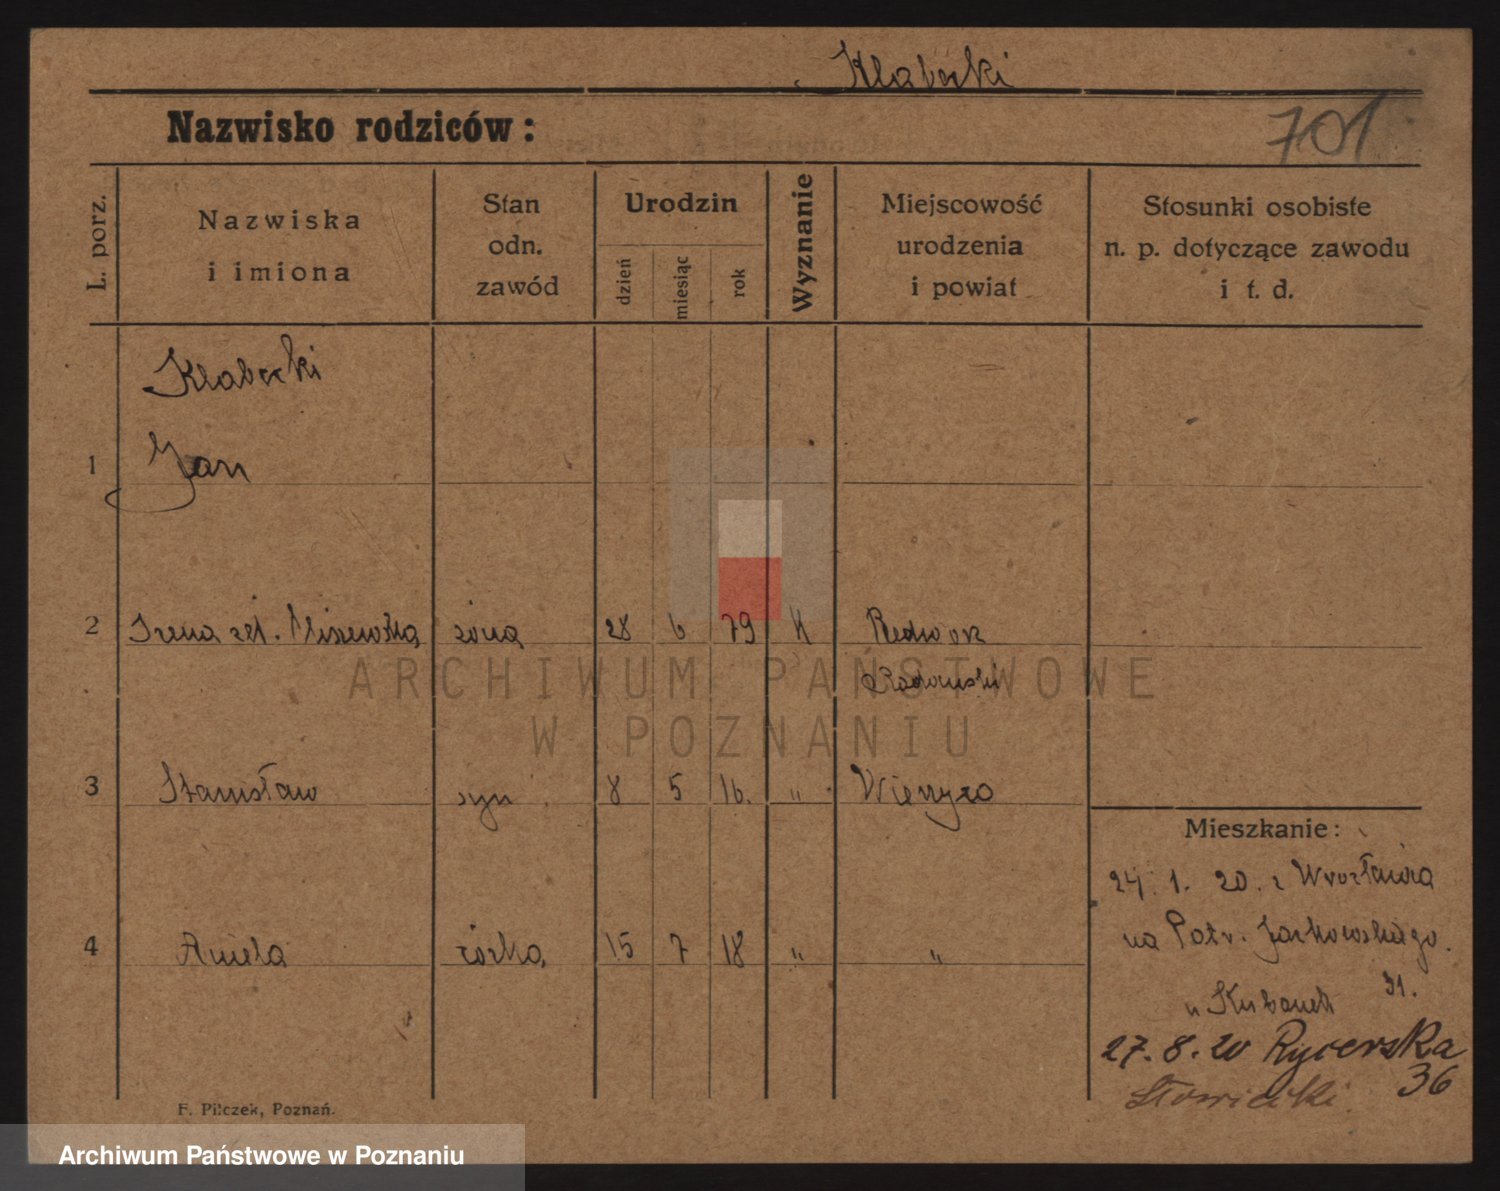 Klabecki
Nazwisko rodziców:
701
L. porz.
Nazwiska
i imiona
Stan
odn.
zawód
Urodzin
dzień
miesiąc
rok
Wyznanie
Miejscowość
urodzenia
i powiat
Stosunki osobiste
n. p. dotyczące zawodu
i t. d.
Klabecki
1 Jan
2 Irena żona 28 6 79 K
3 Stanisław syn 8 5 16. "
4 Aniela córka 15 7 18 " "
Mieszkanie:
24. 1. 20. z Wrocławia
na Jackowskiego.
31.
27. 8. 20 Rycerska
36
Słowiński
F. Pilczek, Poznań.
ARCHIWUM PAŃSTWOWE
W POZNANIU
Archiwum Państwowe w Poznaniu